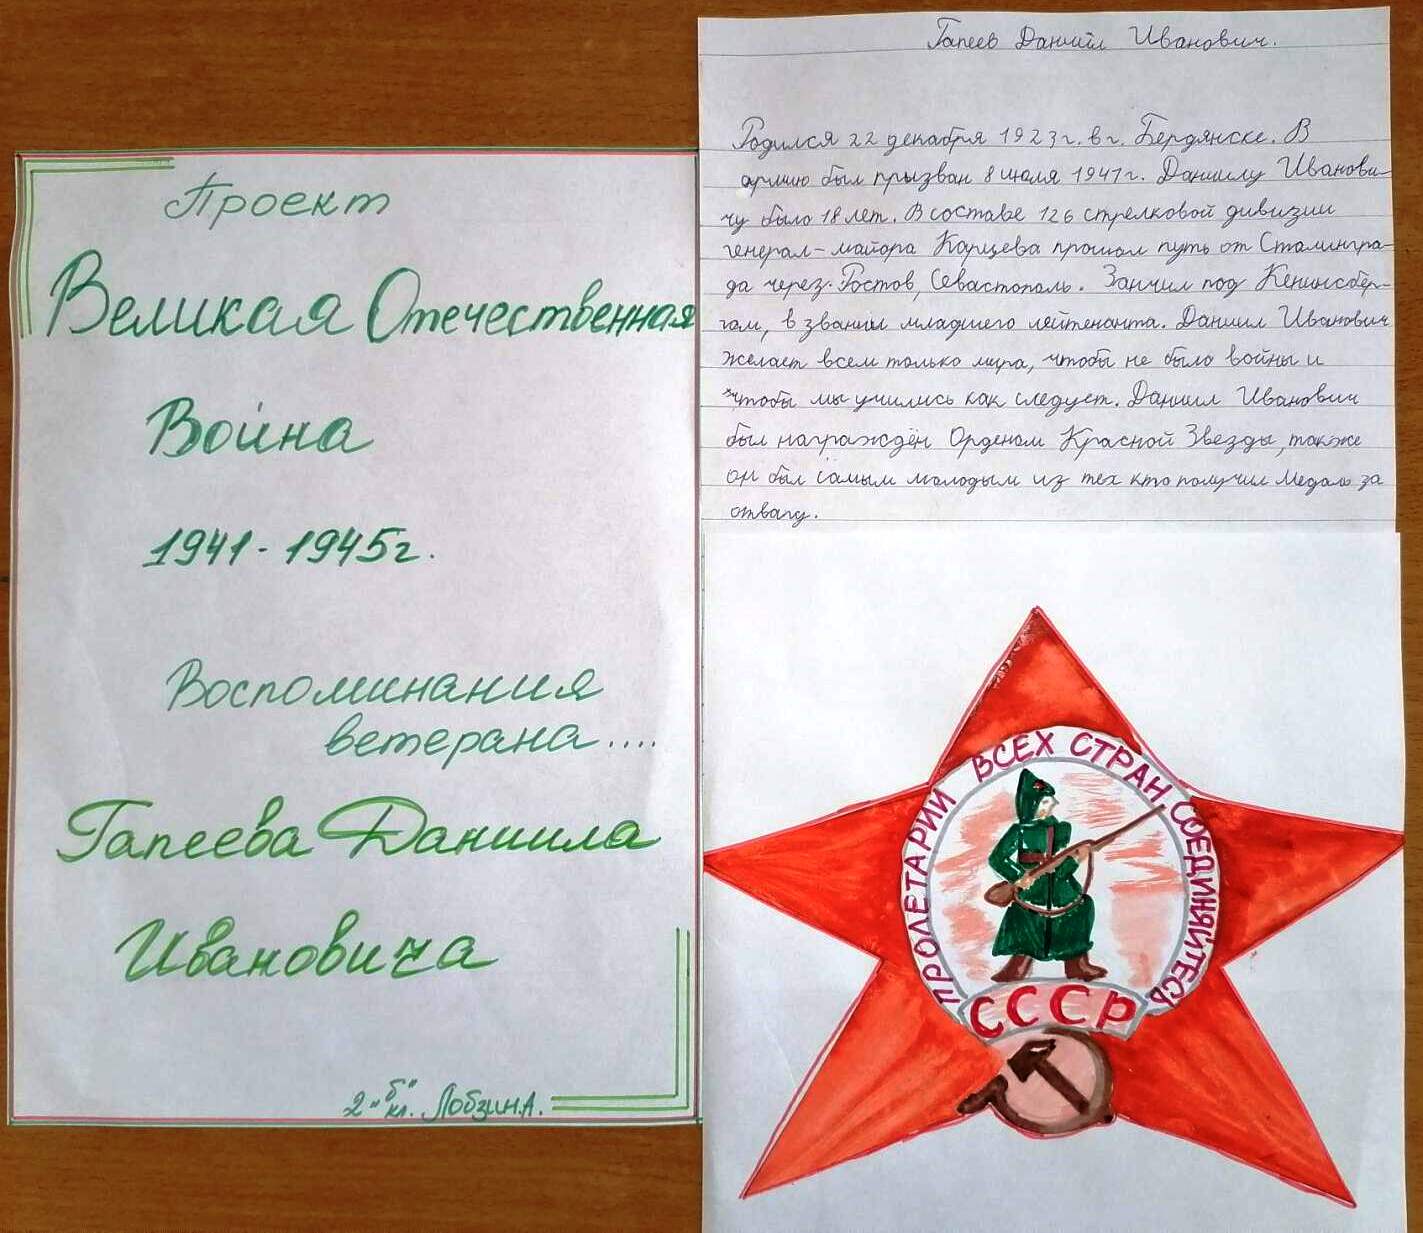 Проект
Великая Отечественная
Война
1941 - 1945г.
Воспоминания
ветерана....
Гапеева Даниила
Ивановича
2 "б" кл. Лобзин А.
Гапеев Даниил Иванович.
Родился 22 декабря 1923г. в г. Бердянске. В
армию был призван 8 июля 1941г. Даниилу Иванови-
чу было 18 лет. В составе 126 стрелковой дивизии
генерал-майора Карцева прошол путь от Сталингра-
да через Ростов, Севастополь. Закончил под Кенингсбер-
гом, в звании младшего лейтенанта. Даниил Иванович
желает всем только мира, чтобы не было войны и
чтобы мы учились как следует. Даниил Иванович
был награждён Орденом Красной Звезды, также
он был самым молодым из тех кто получил Медаль за
отвагу.
ПРОЛЕТАРИИ ВСЕХ СТРАН СОЕДИНЯЙТЕСЬ
СССР